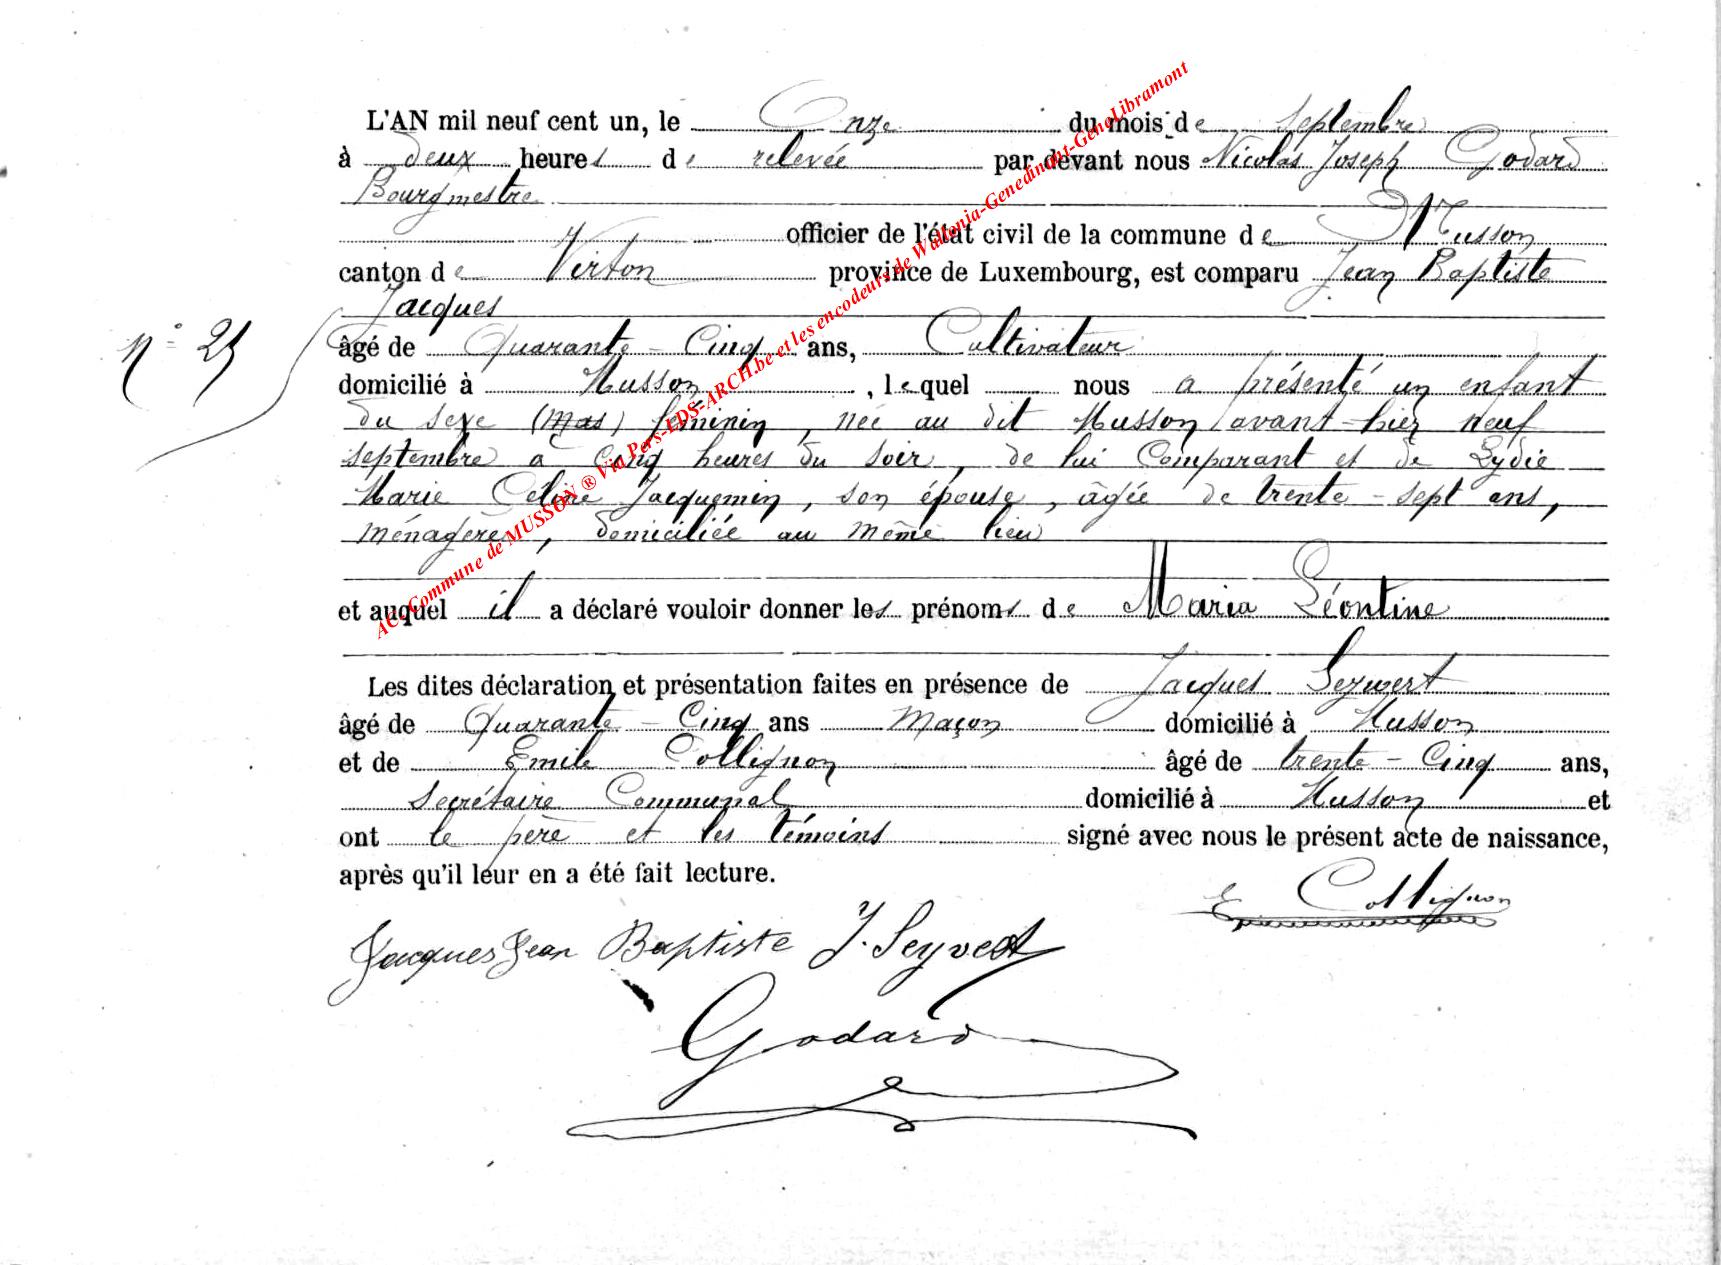 L'AN mil neuf cent un, le Onze du mois de septembre
à deux heures de relevée par devant nous Nicolas Joseph Godard
Bourgmestre
officier de l'état civil de la commune de Musson
canton de Virton province de Luxembourg, est comparu Jean Baptiste
Jacques
âgé de Quarante-Cinq ans, Cultivateur
domicilié à Musson, lequel nous a présenté un enfant
du sexe (mas) féminin, née au dit Musson avant-hier neuf
septembre à Cinq heures du soir, de lui Comparant et de Lydie
Marie Céline Jacquemin, son épouse, âgée de trente-sept ans,
ménagère, domiciliée au même lieu
et auquel il a déclaré vouloir donner les prénoms de Maria Léontine
Les dites déclaration et présentation faites en présence de Jacques Seywert
âgé de Quarante-Cinq ans Maçon domicilié à Musson
et de Emile Collignon âgé de trente-Cinq ans,
Secrétaire Communal domicilié à Musson et
ont le père et les témoins signé avec nous le présent acte de naissance,
après qu'il leur en a été fait lecture.
E Collignon
Jacques Jean Baptiste J. Seyvert
Godard
n°
AC. Commune de MUSSON ® Via Pers-EDS-ARCH.be et les encodeurs de Wallonia-Genedinant-GeneLibramont